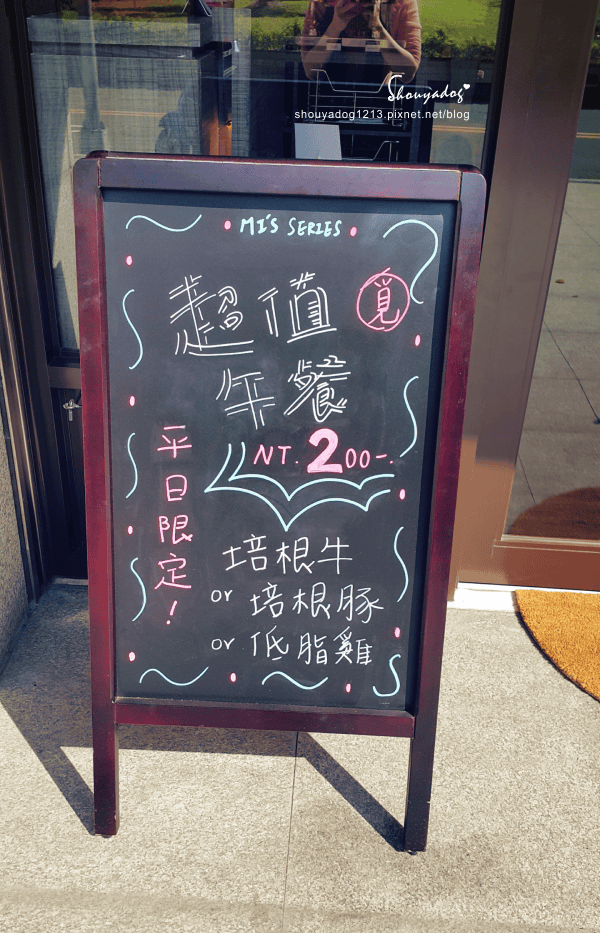 Shouyadog
shouyadog1213.pixnet.net/blog
MI'S SERIES
超值
覓
午餐
NT.200-.
平日限定!
培根牛
or 培根豚
or 低脂雞